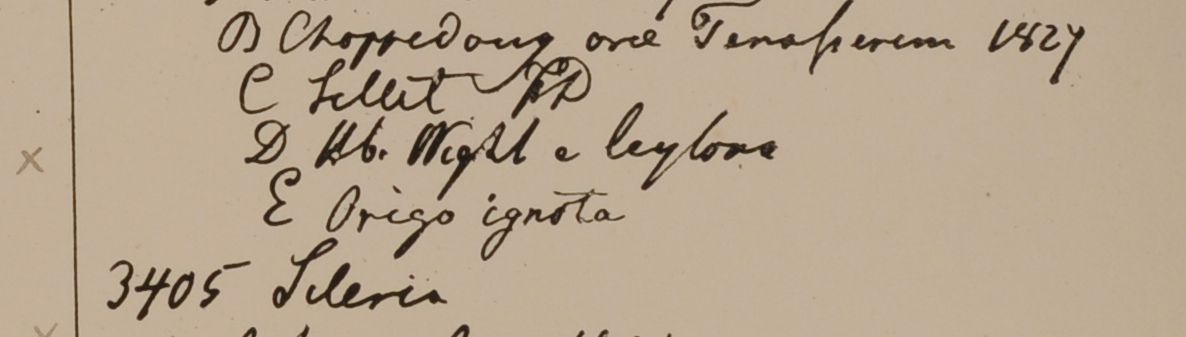 B Choppedong oræ Tenasserim 1827
C Sillet FD
D Hb. Wight e Ceylona
E Origo ignota
3405 Scleria